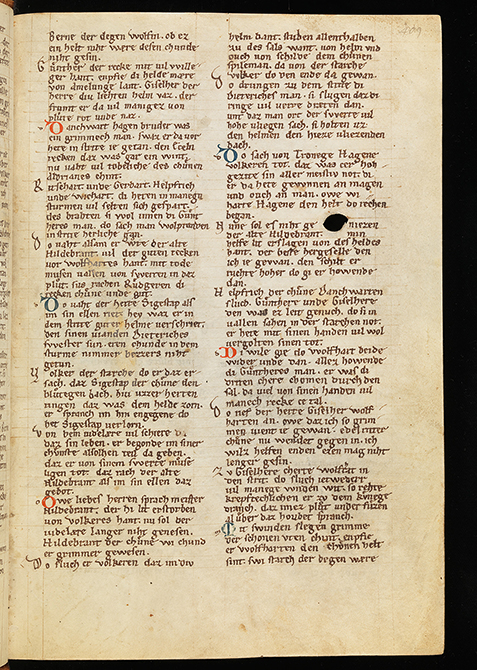 berne der degen wolfin. ob ez
ein helt niht were desen chunde
niht gesin.
Gunther der recke mit vil wille
ger hant. enpfie di helde mære
von amelunge lant. Giselher der
herre div liehten helm vaz. der
frumt er da vil maniger von
plute rot unde naz.
Danchwart hagen bruder was
ein grimmech man. swaz er da vor
hete in strite getan. den Eceln
recken daz was gar ein wint.
nu vaht vil tobliche des chunen
aldrianes chint.
Ritschart unde Gerbart. Helpfrich
unde wichart. di heten in manegen
sturmen vil selten sich gespart.
des brahten si wol innen di Gunt
heres man. do sach man wolpranden
in strite herliche gan.
Do vaht allam er wte der alte
Hildebrant. vil der guten recken
vor wolfhartes hant. mit tode
musen vallen von swerten in daz
plut. sus rachen Rudgeren di
recken chune unde gut.
Do vaht der herre Sigestap als
im sin ellen riet. hey waz er in
dem strite guter helme verschriet.
den sinen vianden Dietriches
swester sun. ern chunde in dem
sturme nimmer bezzers niht
getun.
Volker der starche do er daz er
sach. daz Sigestap der chune den
blutegen bach. hiu uzzer herten
ringen daz was dem helde zorn.
er spranch im hin engegene do
het Sigestap verlorn.
von dem videlære vil schiere da
daz sin leben. er begonde im siner
chunste alsolhen teil da geben.
daz er von sinem swerte muse
ligen tot. daz rach der alte
Hildebrant als im sin ellen daz
gebot.
Owe liebes herren sprach meister
Hildebrant. der hi lit erstorben
von volkeres hant. nu sol der
videlære langer niht genesen.
Hildebrant der chune wi chund
er grimmer gewesen.
Do sluch er volkeren daz im div
helm bant. stuben allenthalben
zu des sals want. von helm und
ouch von schilde dem chunen
spileman. da von der starche
volker do den ende da gewan.
Do drungen zu dem strite di
Dieteriches man. si slugen daz di
ringe vil verre dræten dan.
unt daz man ort der swerte vil
hohe vliegen sach. si holten uz
den helmen den hieze vliezenden
bach.
Do sach von Tronege Hagene
volkeren tot. daz was zer hoh
gezite sin aller meistiv not. di
er da hete gewunnen an magen
und ouch an man. owe wi
harte Hagene den helt do rechen
began.
Nune sol es niht ge niezen
der alte Hildebrant. min
helfe lit erslagen von des heldes
hant. der beste hergeselle den
ich ie gewan. den schilt er
ruchte hoher do gi er howende
dan.
Helpfrich der chune Danchwarten
sluch. Gunthere unde Giselhere
den was ez leit genuch. do si in
vallen sahen in der starchen not.
er hete mit sinen handen vil wol
vergolten sinen tot.
Di wile gie do wolfhart beide
wider unde van. alles howende
di Guntheres man. er was di
dritten chere chomen durch den
sal. da viel von sinen handen vil
manech recke ze tal.
Do rief der herre Giselher wolf
harten an. owe daz ich so grim
men vient ie gewan. edel ritter
chune nu wendet gegen in. ich
wilz helfen enden ezen mag niht
langer gesin.
Zu Giselhere cherte wolfhart in
den strit. do sluch ietweder
vil manege wunden wit. so rehte
krepftechlichen er zu dem kunege
dranch. daz imez plut under fuzen
al uber daz houbet spranch.
Mit swinden slegen grimme
der schonen Uten chint. enpfie
er wolfharten den chonen helt
sint. swi starch der degen were